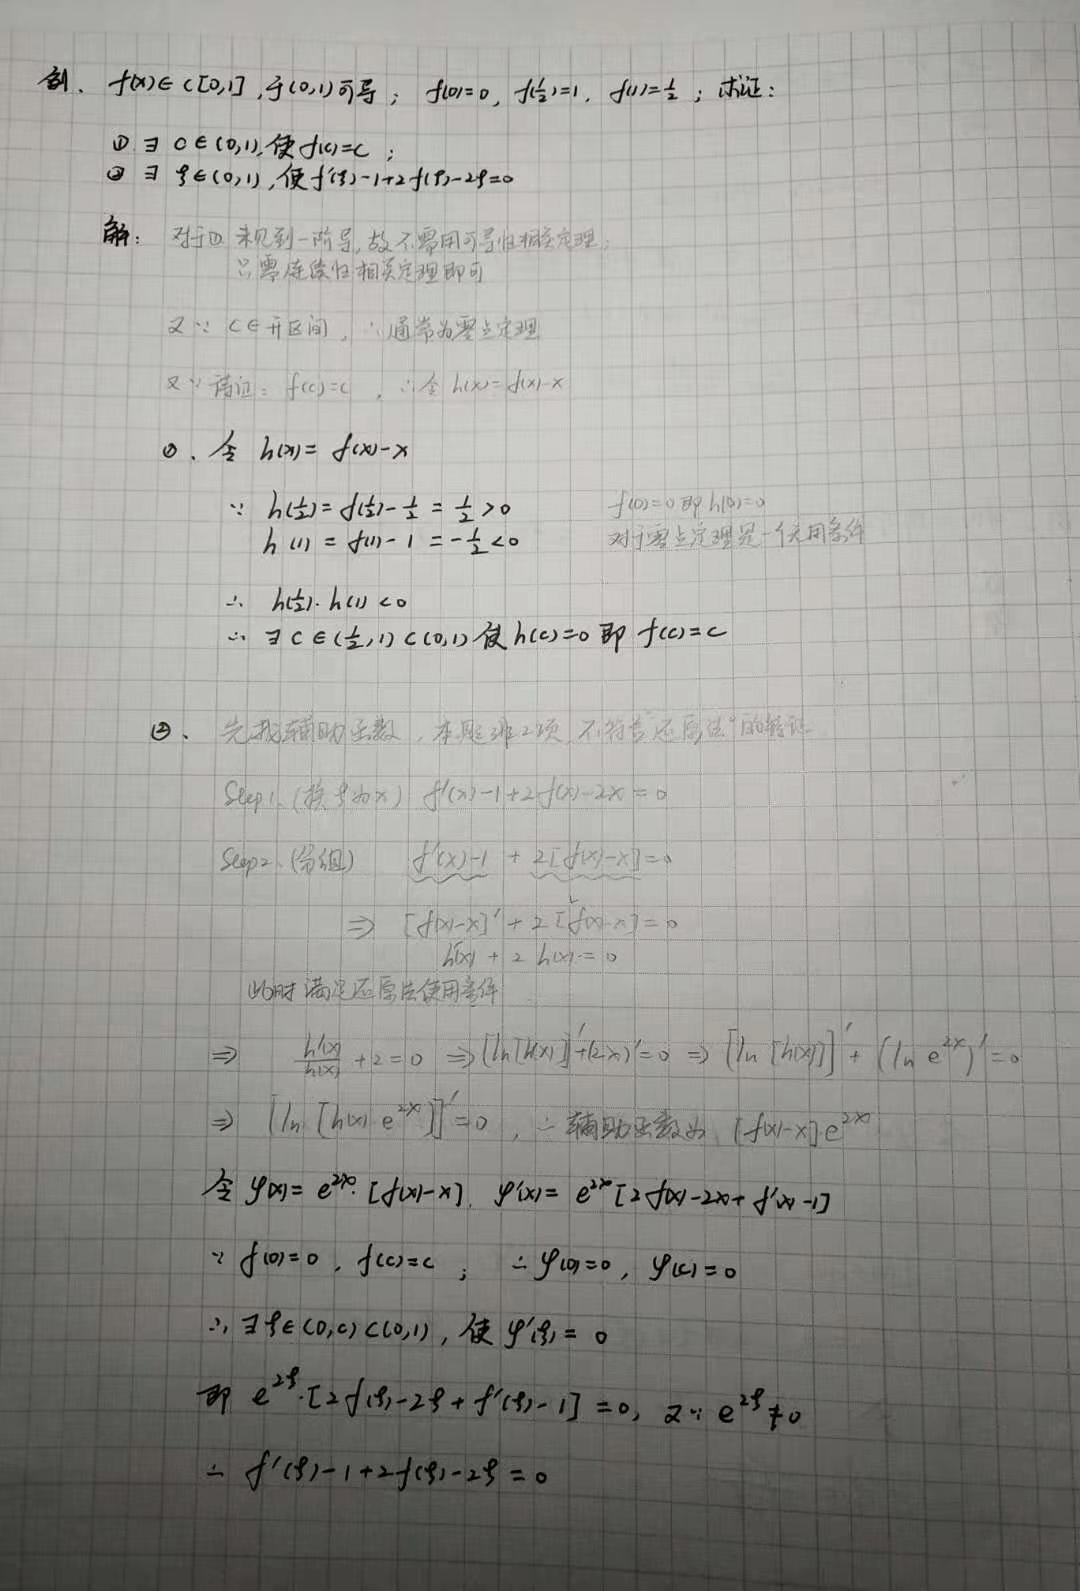 例、 f(x)∈C[0,1],于(0,1)可导; f(0)=0, f(1/2)=1, f(1)=1/2; 求证:
① ∃ C∈(0,1),使f(c)=c;
② ∃ ξ∈(0,1),使f'(ξ)-1+2f(ξ)-2ξ=0
解: 对于① 未见到一阶导,故不需用可导性相关定理;
只需连续性相关定理即可
又∵ C∈开区间, ∴通常为零点定理
又∵请证: f(c)=c , ∴令 h(x)=f(x)-x
①、令 h(x)= f(x)-x
∵ h(1/2)=f(1/2)-1/2 = 1/2 >0 f(0)=0 即 h(0)=0
h(1) = f(1)-1 = -1/2 <0 对于零点定理是一个无用条件
∴ h(1/2)·h(1)<0
∴ ∃ C∈(1/2,1)⊂(0,1) 使 h(c)=0 即 f(c)=c
②、 先找辅助函数,本题非2项,不符合"还原法"的特征
Step1、(换ξ为x) f'(x)-1+2f(x)-2x=0
Step2、(分组) f'(x)-1 + 2[f(x)-x]=0
⇒ [f(x)-x]' + 2[f(x)-x]=0
h'(x) + 2 h(x) = 0
此时满足还原法使用条件
⇒ h'(x)/h(x) +2=0 ⇒ [ln[h(x)]]'+(2x)'=0 ⇒ [ln [h(x)]]' + (ln e^{2x})'=0
⇒ [ln [h(x) e^{2x}]]'=0 , ∴辅助函数为 [f(x)-x]·e^{2x}
令 φ(x)= e^{2x}·[f(x)-x], φ'(x)= e^{2x}[2f(x)-2x+f'(x)-1]
∵ f(0)=0 , f(c)=c ; ∴φ(0)=0, φ(c)=0
∴ ∃ξ∈(0,c)⊂(0,1), 使 φ'(ξ)=0
即 e^{2ξ}·[2f(ξ)-2ξ+f'(ξ)-1]=0, 又∵ e^{2ξ}≠0
∴ f'(ξ)-1+2f(ξ)-2ξ=0